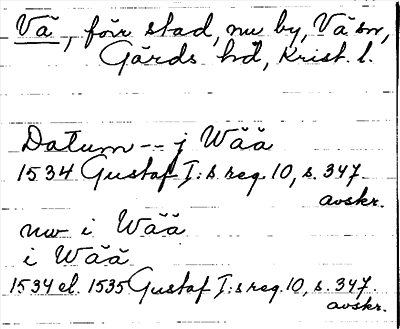 Vä, förr stad, nu by, Vä sn,
Gärds hd, Krist. l.
Datum -- j Wää
1534 Gustaf I:s reg. 10, s. 347.
avskr.
nw i Wää
i Wää
1534 el. 1535 Gustaf I:s reg. 10, s. 347.
avskr.